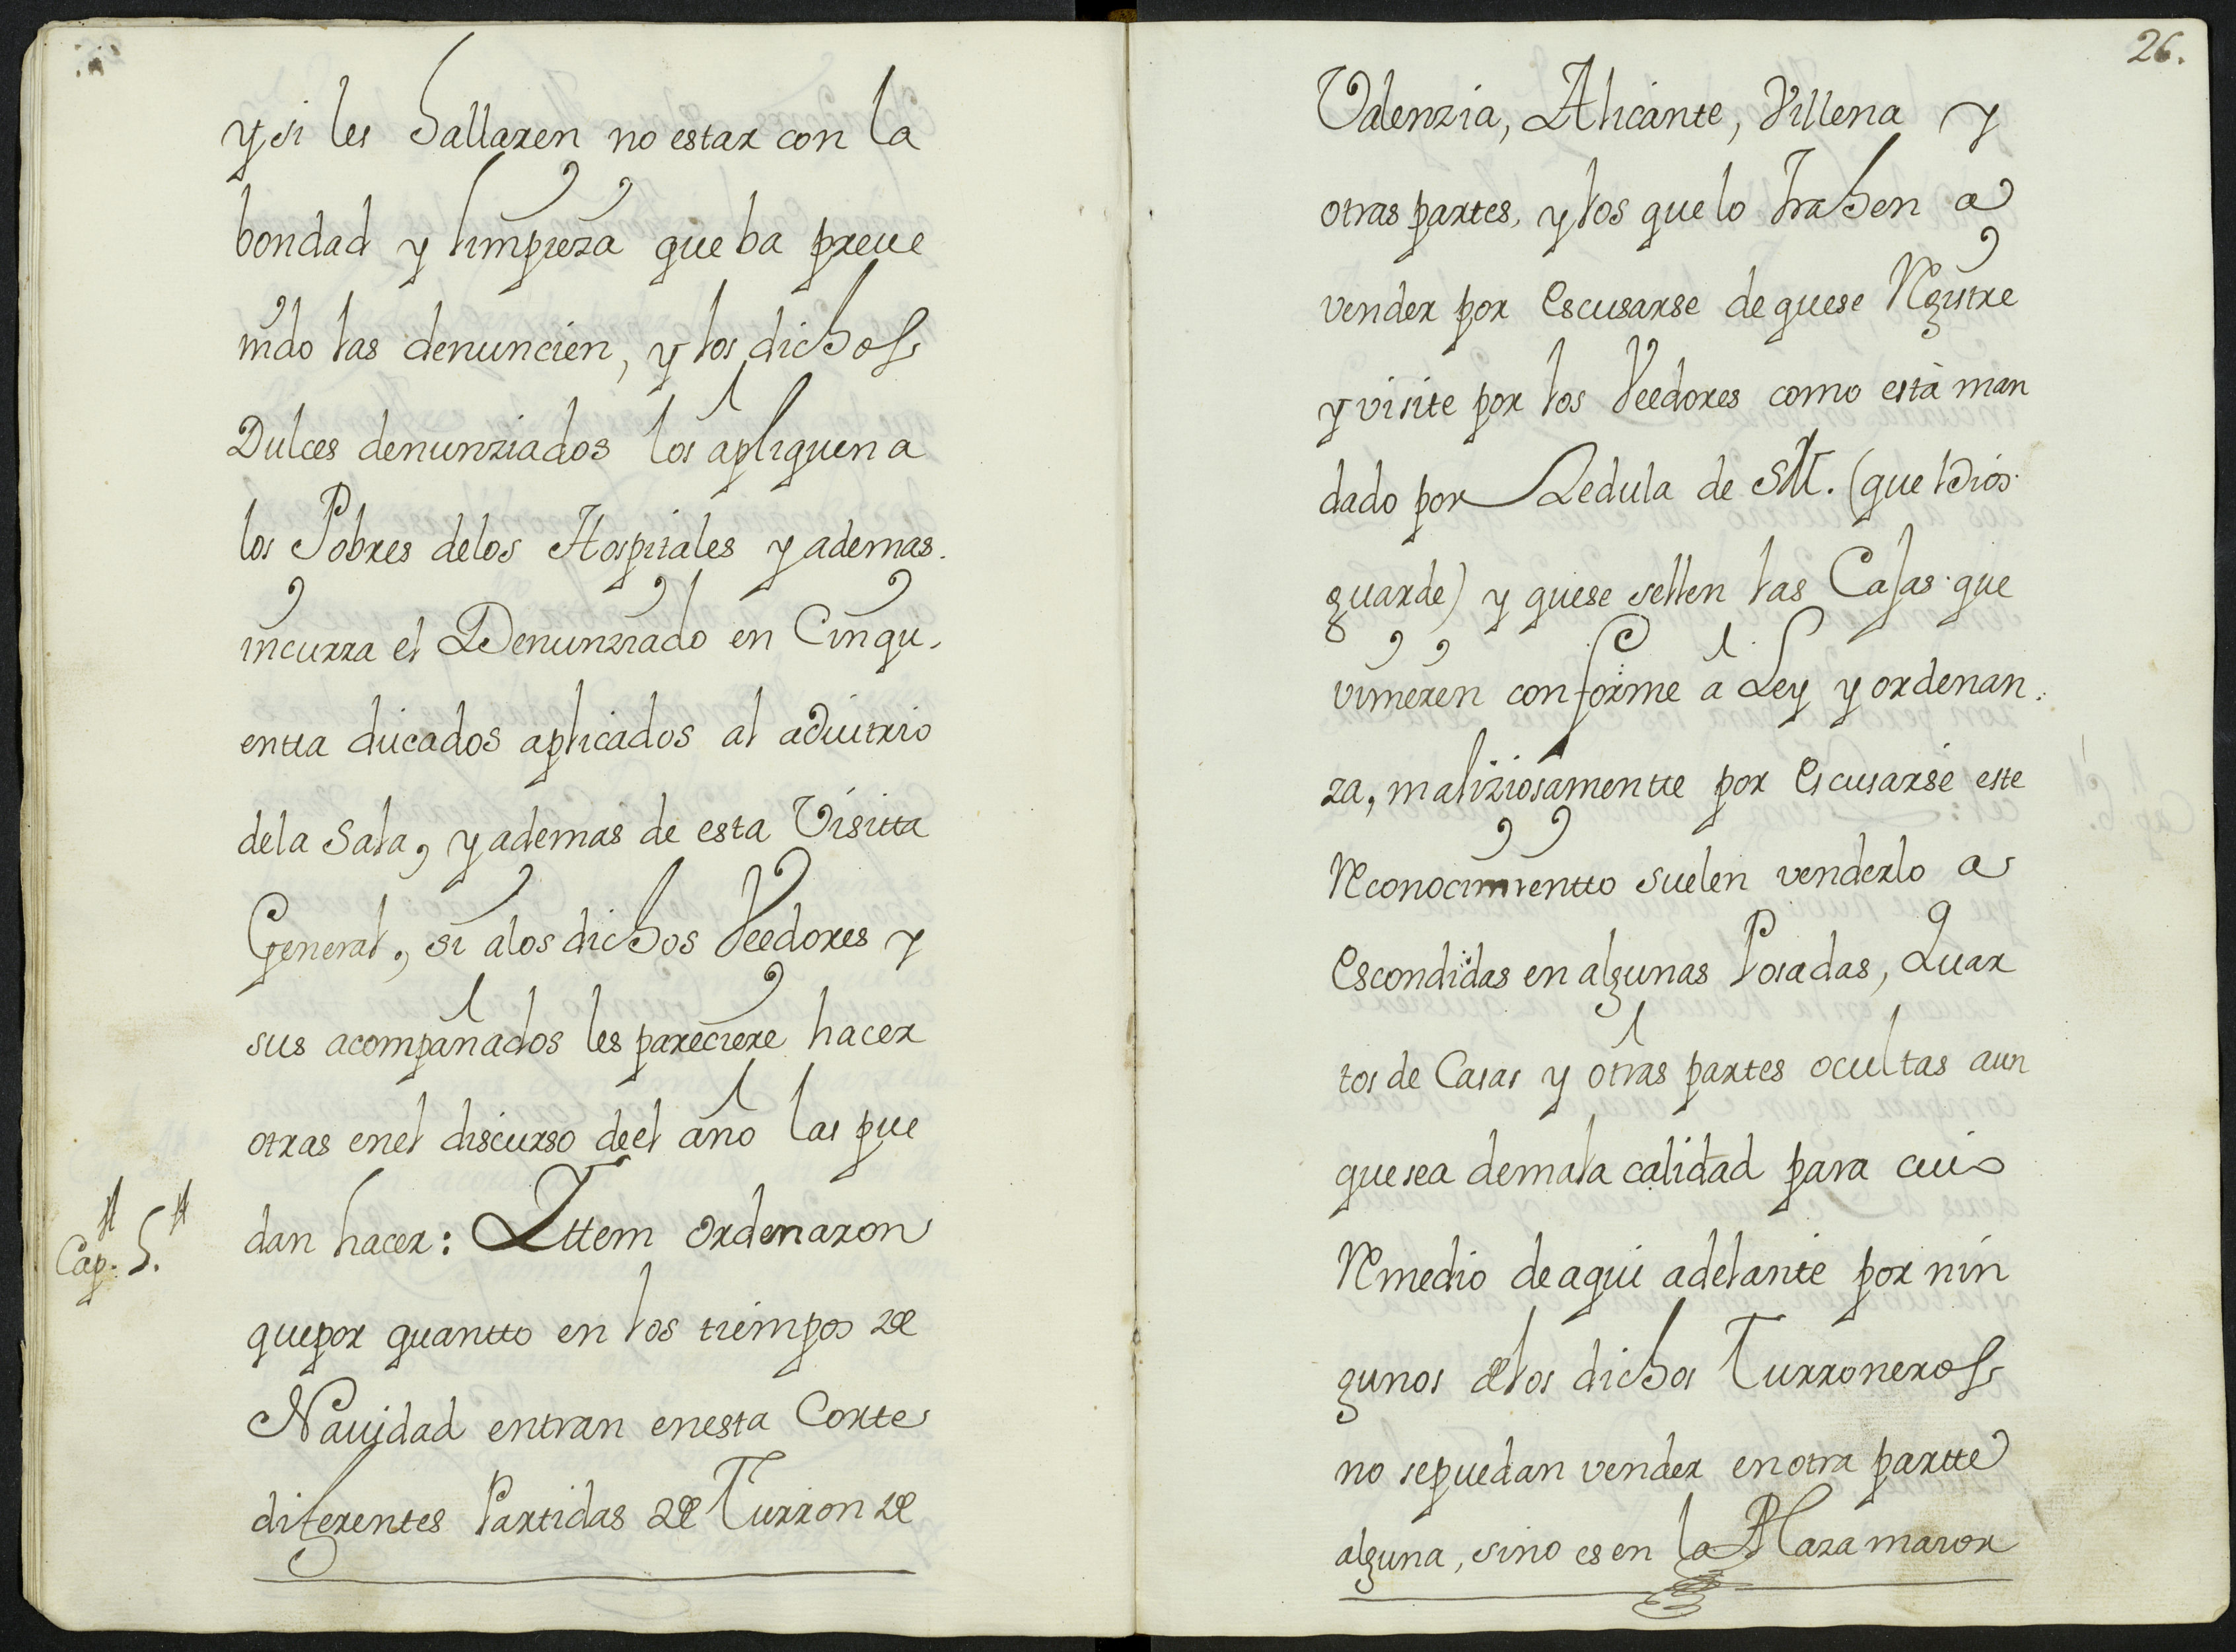 y si les hallaren no estar con la
bondad y limpieza que ba preue
nido las denuncien, y los dichos
Dulces denunziados los apliquen a
los Pobres delos Hospitales y ademas.
incurra el Denunziado en Cinqu
entta ducados aplicados al aduitrio
dela Sala, y ademas de esta Visitta
General, si alos dichos Veedores y
sus acompañados les pareciere hacer
otras enel discurso deel año las pue
Cap. 5.
dan hacer: Ittem ordenaron
quepor quantto en los tiempos de
Nauidad entran enesta Corte
diferentes Partidas de Turron de
26.
Valenzia, Alicante, Villena y
otras partes, y los que lo trahen a
vender por escusarse de quese Registre
y visite por los Veedores como està man
dado por Zedula de SM. (que Dios
guarde) y quese sellen las Cajas que
vinieren conforme à Ley y ordenan
za, maliziosamentte por escusarse este
Reconocimientto suelen venderlo a
Escondidas en algunas Posadas, Quar
tos de Casas y otras partes ocultas aun
quesea demala calidad para cuio
Remedio deaqui adelante por nin
gunos delos dichos Turroneros
no sepuedan vender enotra partte
alguna, sino es en la Plaza maior